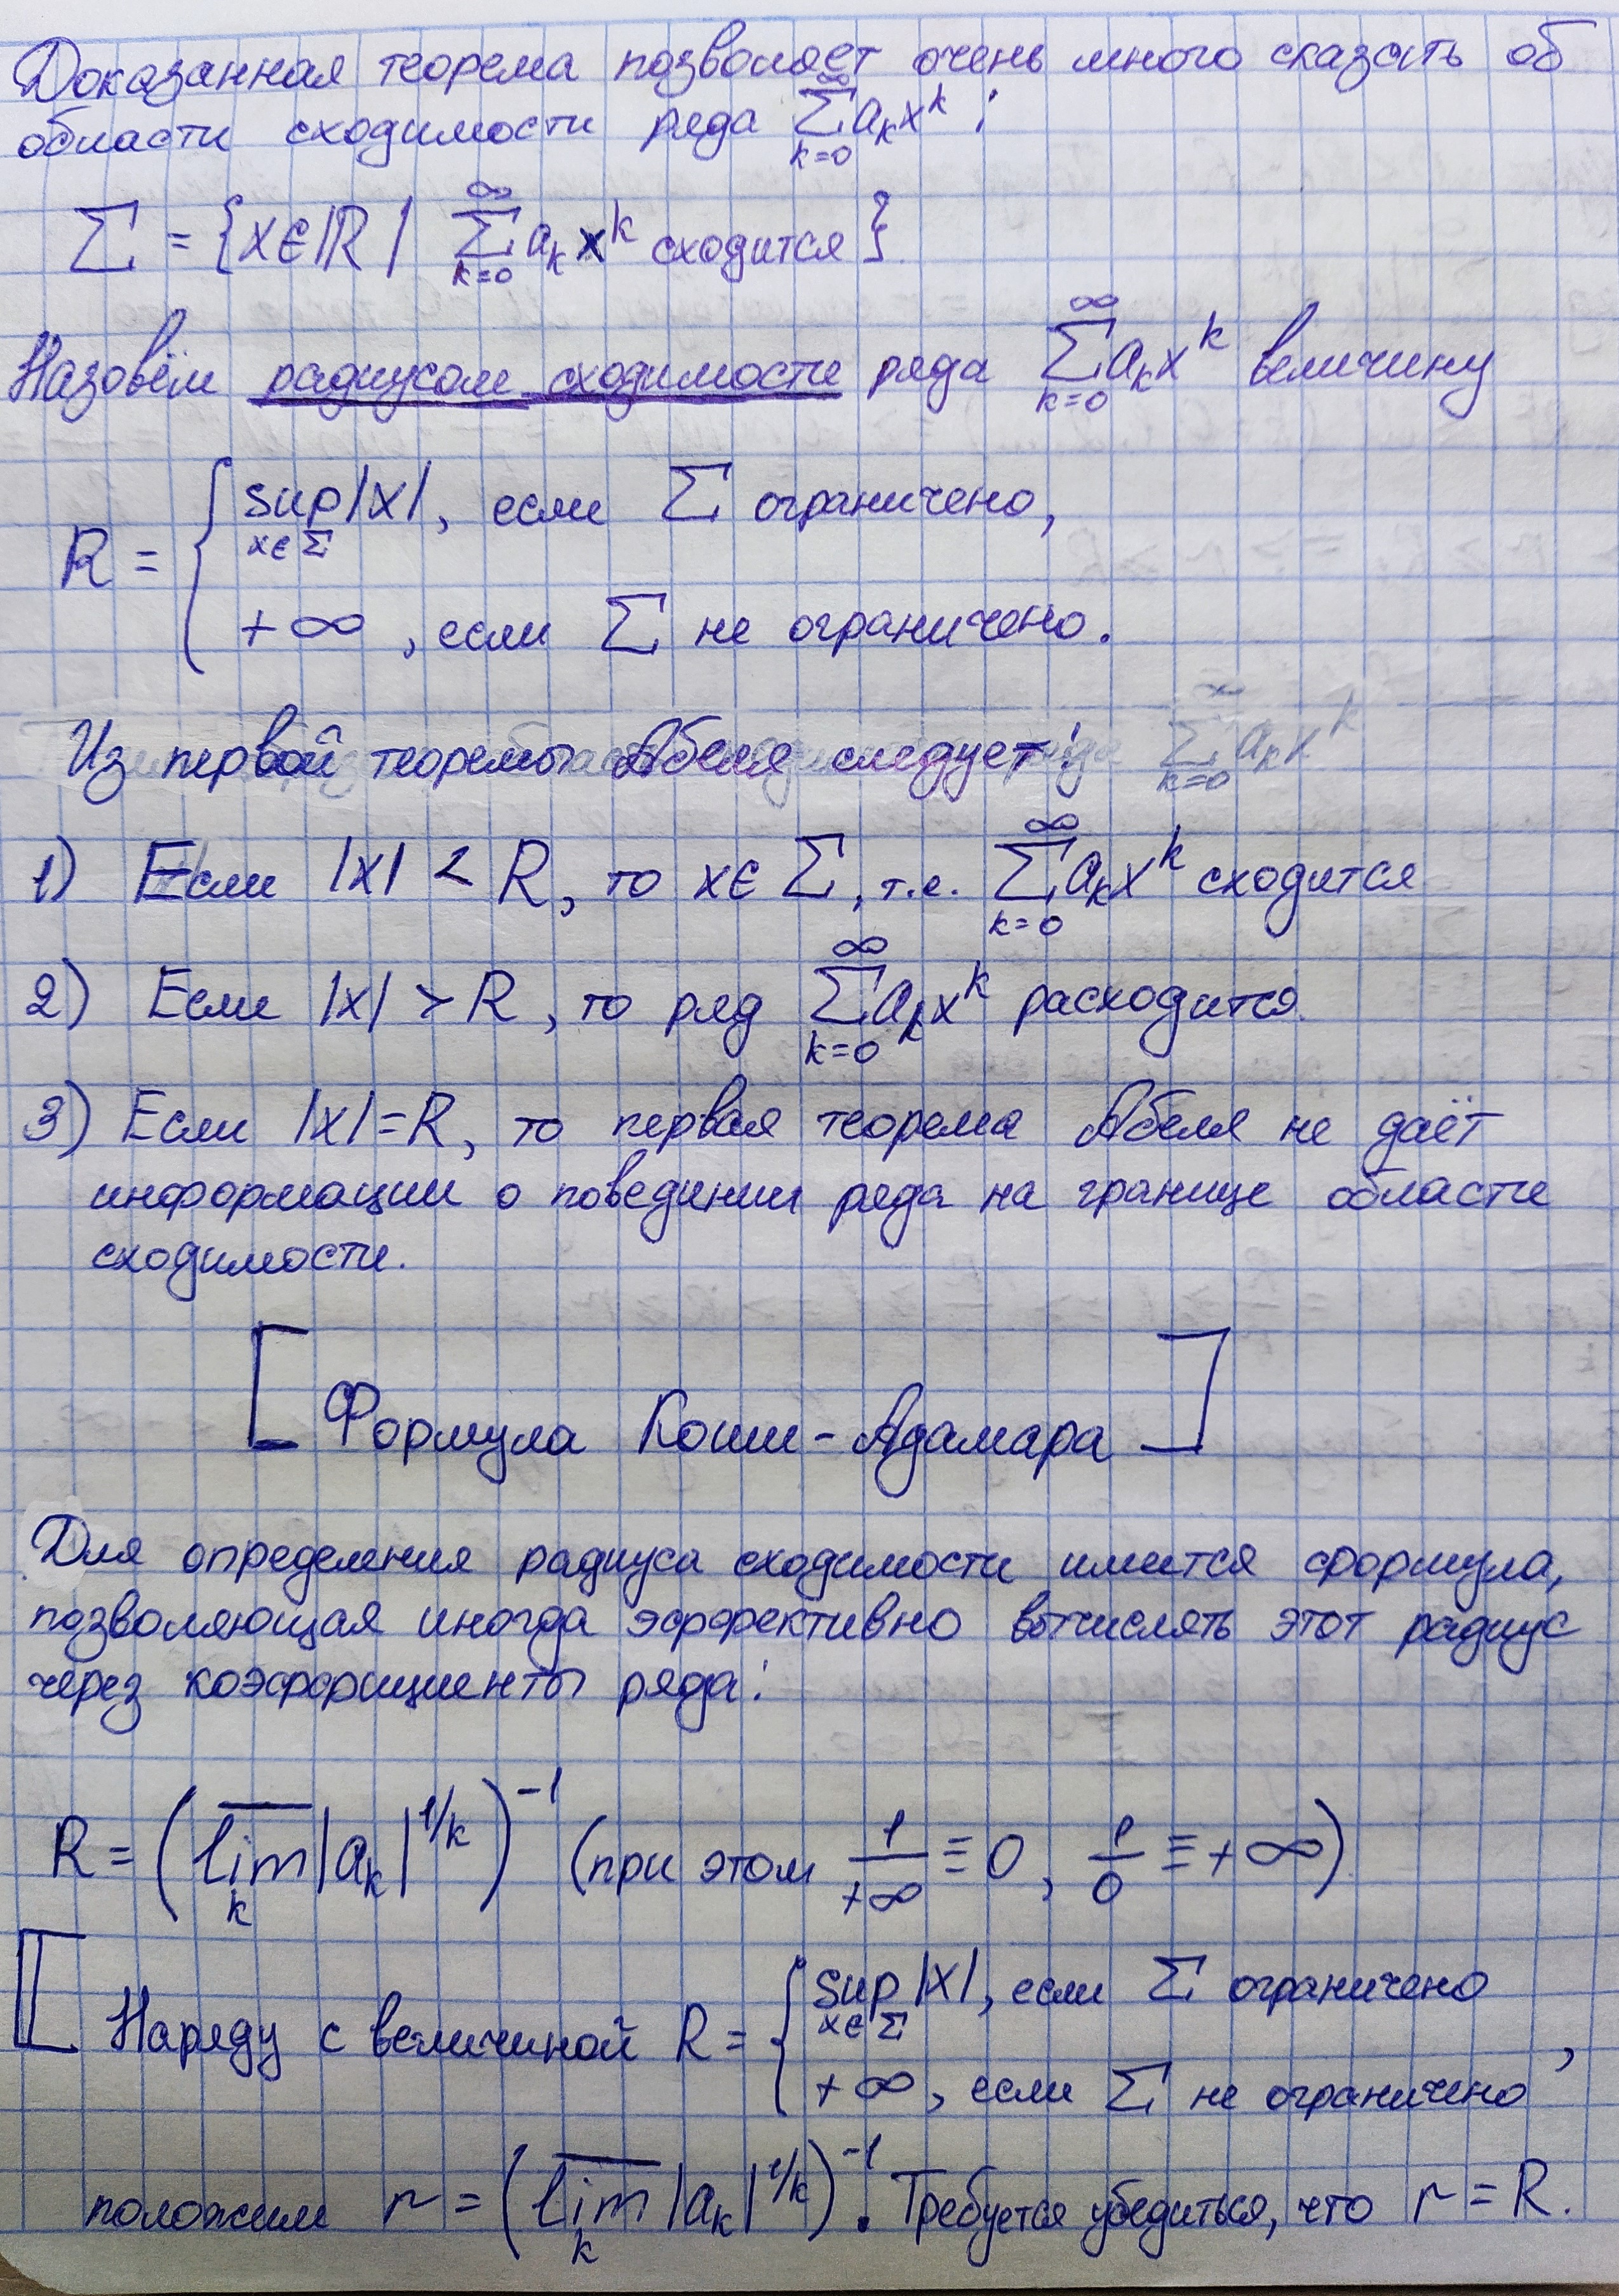 Доказанная теорема позволяет очень много сказать об
области сходимости ряда $\sum_{k=0}^{\infty} a_k x^k$:
$\Sigma = \{x \in \mathbb{R} \mid \sum_{k=0}^{\infty} a_k x^k$ сходится$\}$.
Назовём радиусом сходимости ряда $\sum_{k=0}^{\infty} a_k x^k$ величину
$R = \begin{cases} \sup_{x \in \Sigma} |x|, \text{ если } \Sigma \text{ ограничено,} \\ +\infty, \text{ если } \Sigma \text{ не ограничено.} \end{cases}$
Из первой теоремы Абеля следует:
1) Если $|x| < R$, то $x \in \Sigma$, т.е. $\sum_{k=0}^{\infty} a_k x^k$ сходится
2) Если $|x| > R$, то ряд $\sum_{k=0}^{\infty} a_k x^k$ расходится.
3) Если $|x| = R$, то первая теорема Абеля не даёт
информации о поведении ряда на границе области
сходимости.
[Формула Коши-Адамара]
Для определения радиуса сходимости имеется формула,
позволяющая иногда эффективно вычислять этот радиус
через коэффициенты ряда:
$R = \left(\overline{\lim_k} |a_k|^{1/k}\right)^{-1}$ (при этом $\frac{1}{+\infty} \equiv 0$, $\frac{1}{0} \equiv +\infty$)
[ Наряду с величиной $R = \begin{cases} \sup_{x \in \Sigma} |x|, \text{ если } \Sigma \text{ ограничено} \\ +\infty, \text{ если } \Sigma \text{ не ограничено} \end{cases}$,
положим $r = \left(\overline{\lim_k} |a_k|^{1/k}\right)^{-1}$. Требуется убедиться, что $r = R$.